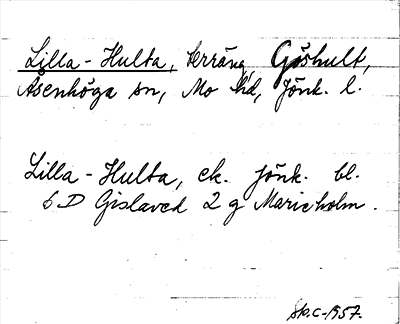 Lilla-Hulta, terräng Göshult,
Åsenhöga sn, Mo hd, Jönk. l.
Lilla-Hulta, ek. Jönk. bl.
6 D Gislaved 2 g Marieholm.
sk.c-1957.